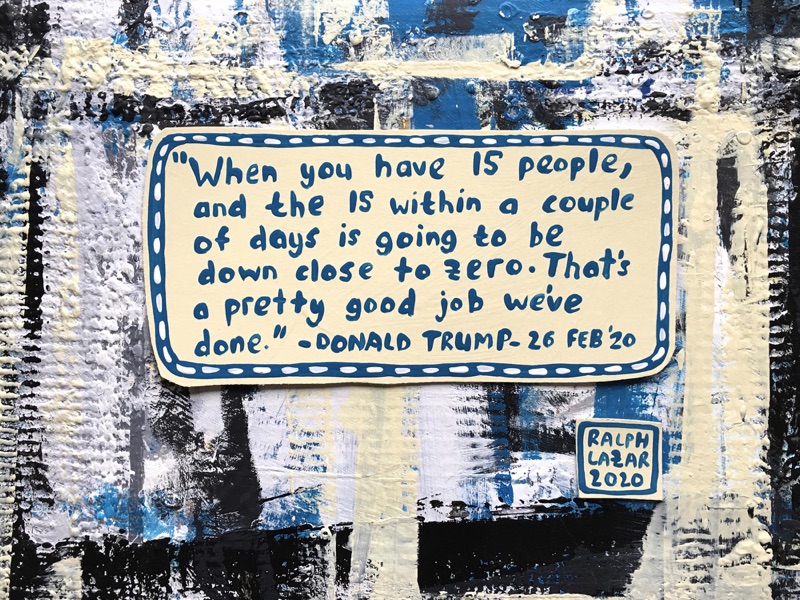 "When you have 15 people,
and the 15 within a couple
of days is going to be
down close to zero. That's
a pretty good job we've
done." -DONALD TRUMP- 26 FEB'20
RALPH
LAZAR
2020